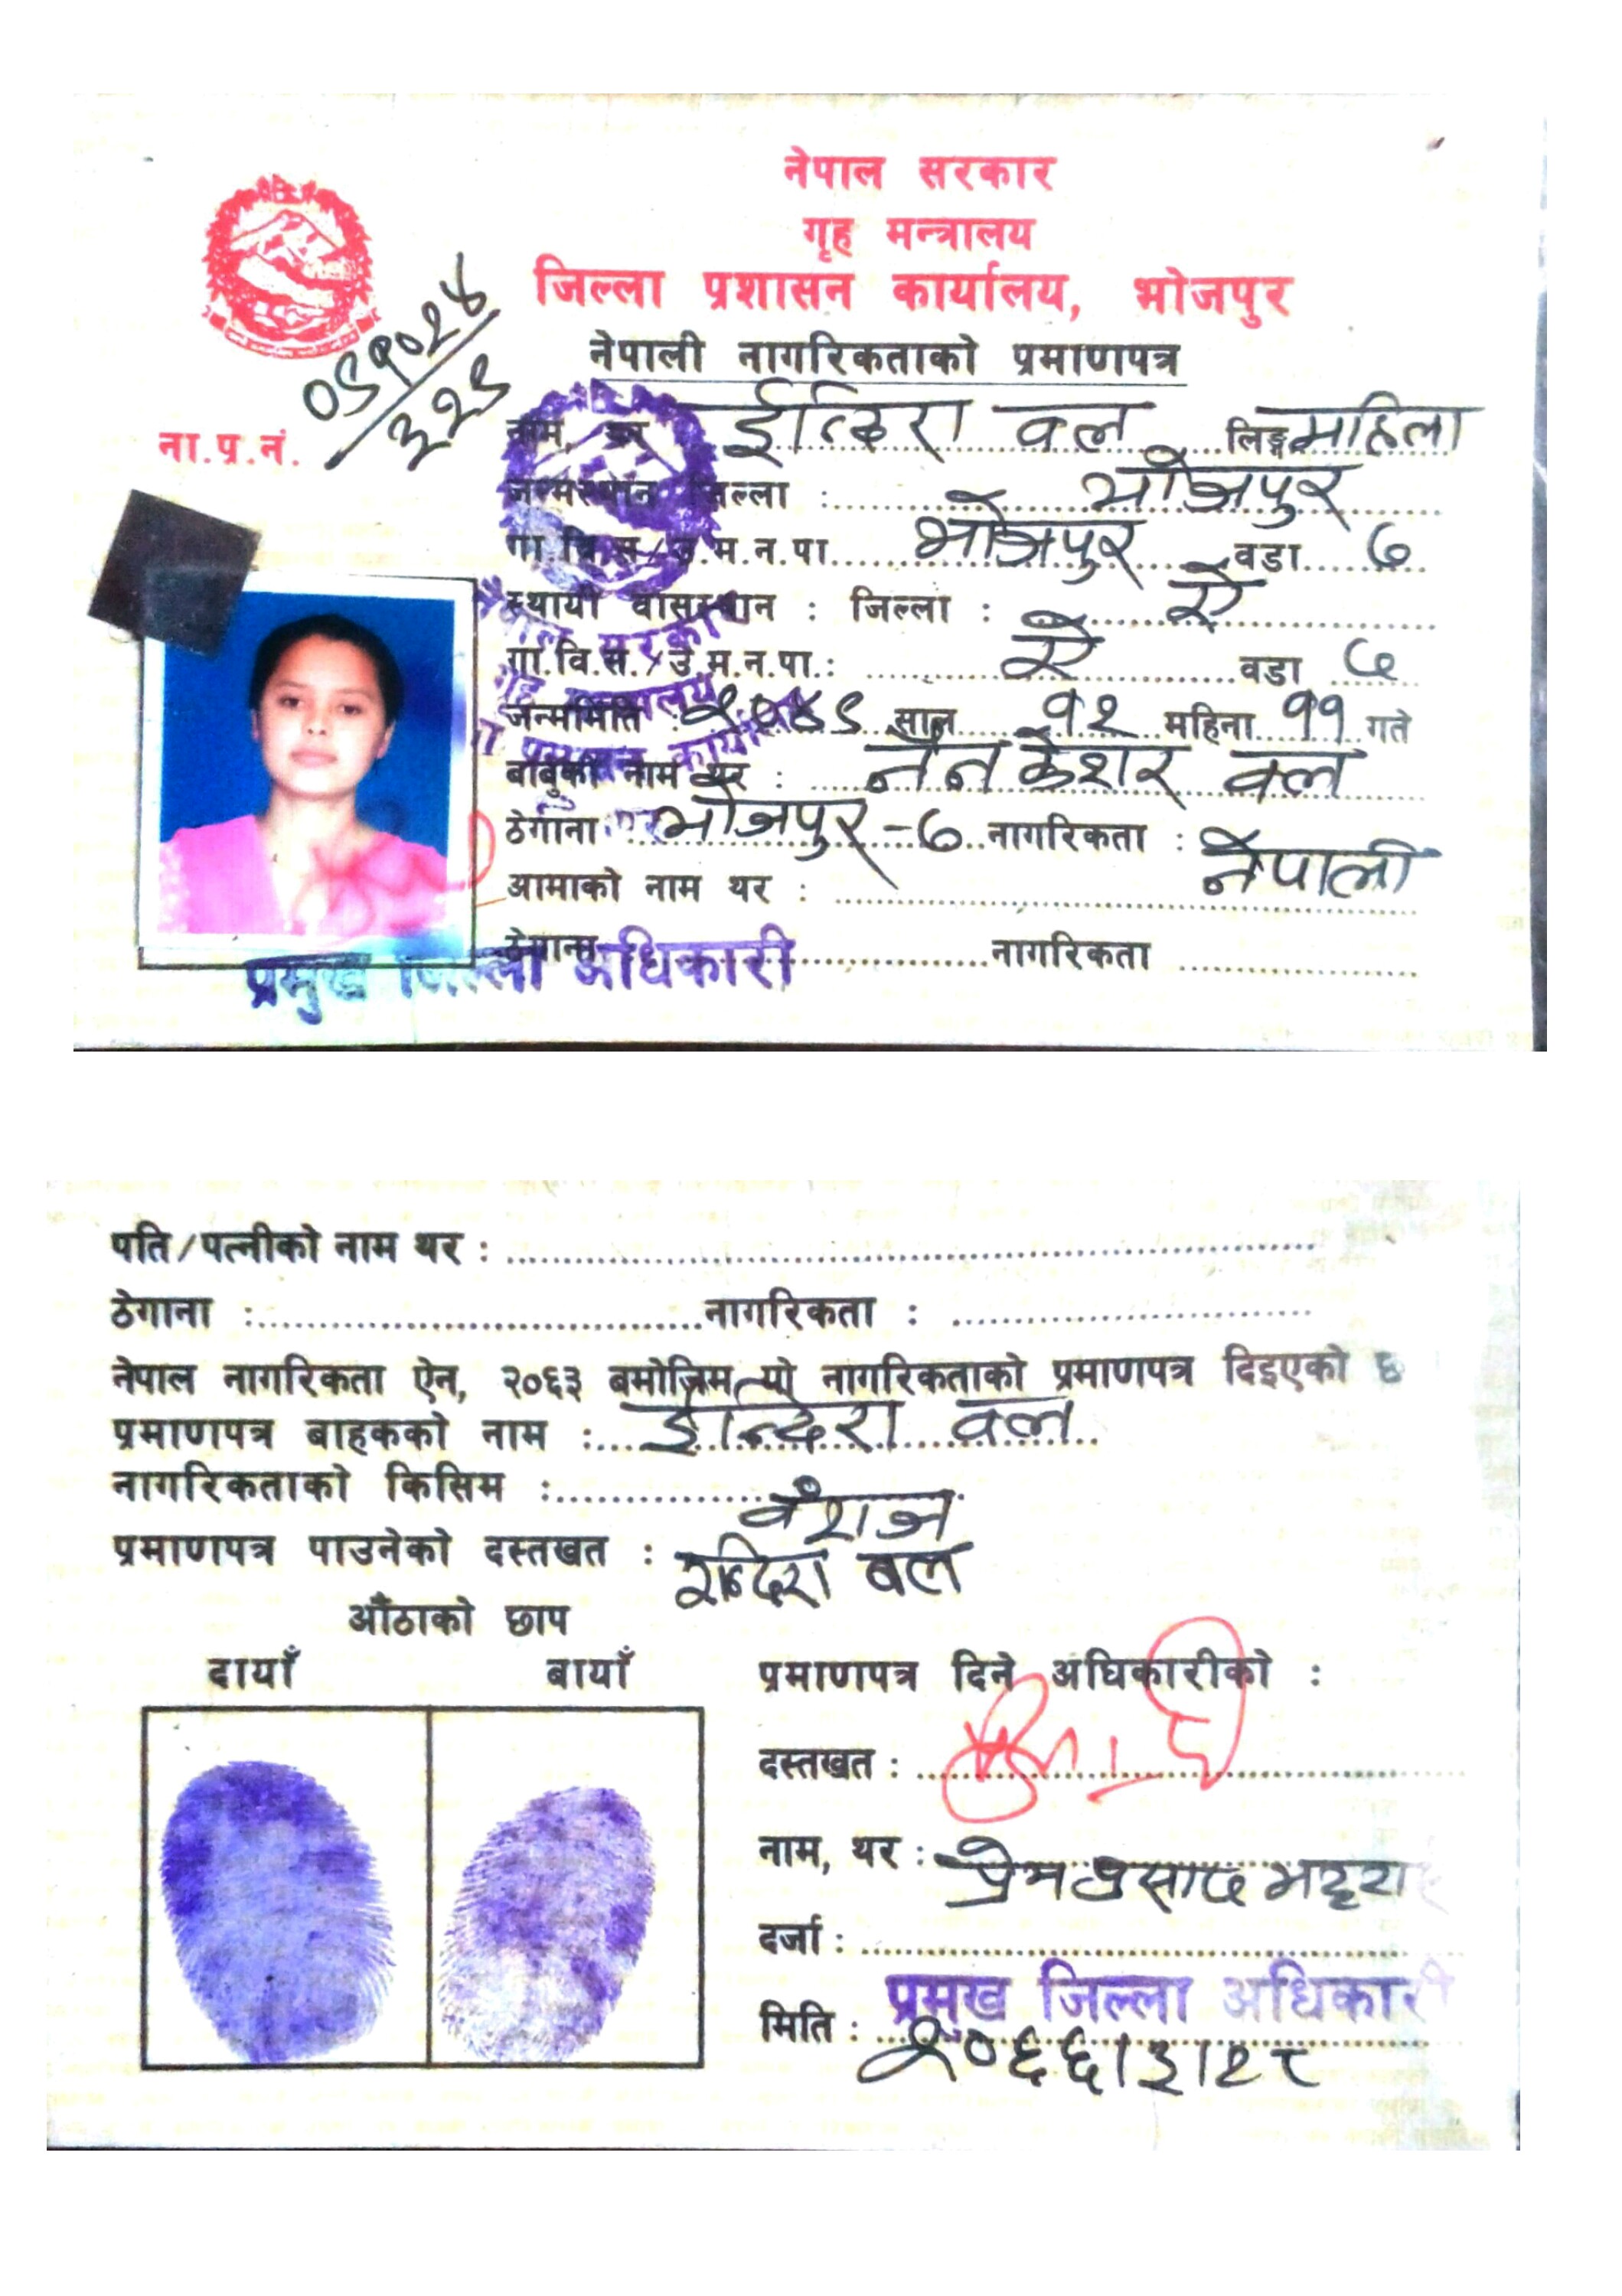 नेपाल सरकार
गृह मन्त्रालय
जिल्ला प्रशासन कार्यालय, भोजपुर
नेपाली नागरिकताको प्रमाणपत्र
ना.प्र.नं.
नाम, थर ईन्दिरा वल लिङ्ग महिला
जन्मस्थान जिल्ला : भोजपुर
गा.वि.स./उ.म.न.पा. भोजपुर वडा ७
स्थायी वासस्थान : जिल्ला : ऐ
गा.वि.स./उ.म.न.पा.: ऐ वडा ७
जन्ममिति : २०४९ साल १२ महिना ११ गते
बाबुको नाम थर : वल
ठेगाना : भोजपुर-७ नागरिकता : नेपाली
आमाको नाम थर :
ठेगाना नागरिकता
प्रमुख जिल्ला अधिकारी
पति/पत्नीको नाम थर :
ठेगाना : नागरिकता :
नेपाल नागरिकता ऐन, २०६३ बमोजिम यो नागरिकताको प्रमाणपत्र दिइएको छ
प्रमाणपत्र बाहकको नाम : ईन्दिरा वल
नागरिकताको किसिम : वंशज
प्रमाणपत्र पाउनेको दस्तखत : इन्दिरा बल
औंठाको छाप
दायाँ बायाँ
प्रमाणपत्र दिने अधिकारीको :
दस्तखत :
नाम, थर : प्रेम प्रसाद
दर्जा :
प्रमुख जिल्ला अधिकारी
मिति : २०६६।३।२८